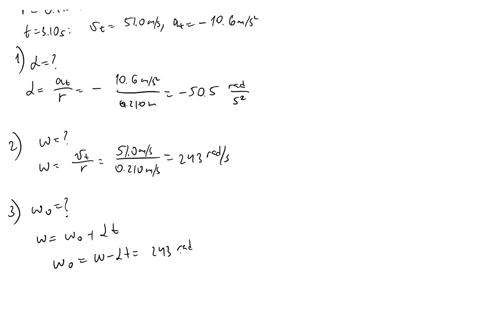 t=3.10s: v_t = 51.0 m/s, a_t = -10.6 m/s²
1) α=?
α = a_t/r = - 10.6 m/s²/0.210m = -50.5 rad/s²
2) w=?
w = v_t/r = 51.0 m/s/0.210 m/s = 243 rad/s
3) w₀=?
w = w₀ + αt
w₀ = w - αt = 243 rad